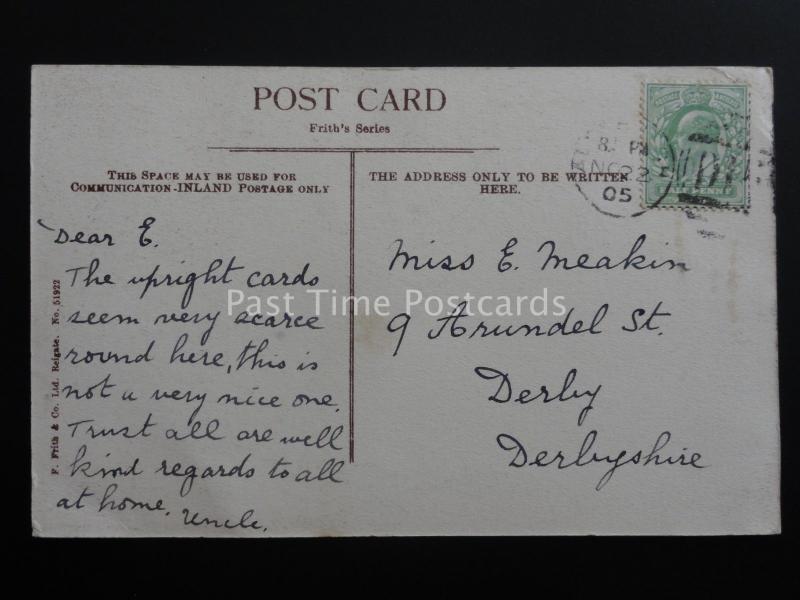 POST CARD
Frith's Series
THIS SPACE MAY BE USED FOR
COMMUNICATION-INLAND POSTAGE ONLY
THE ADDRESS ONLY TO BE WRITTEN
HERE.
Dear E.
The upright cards
seem very scarce
round here, this is
not a very nice one.
Trust all are well
kind regards to all
at home.
Uncle.
Miss E. Meakin
9 Arundel St.
Derby
Derbyshire
F. Frith & Co. Ltd. Reigate. No. 51922
HALF PENNY
22
05
Past Time Postcards